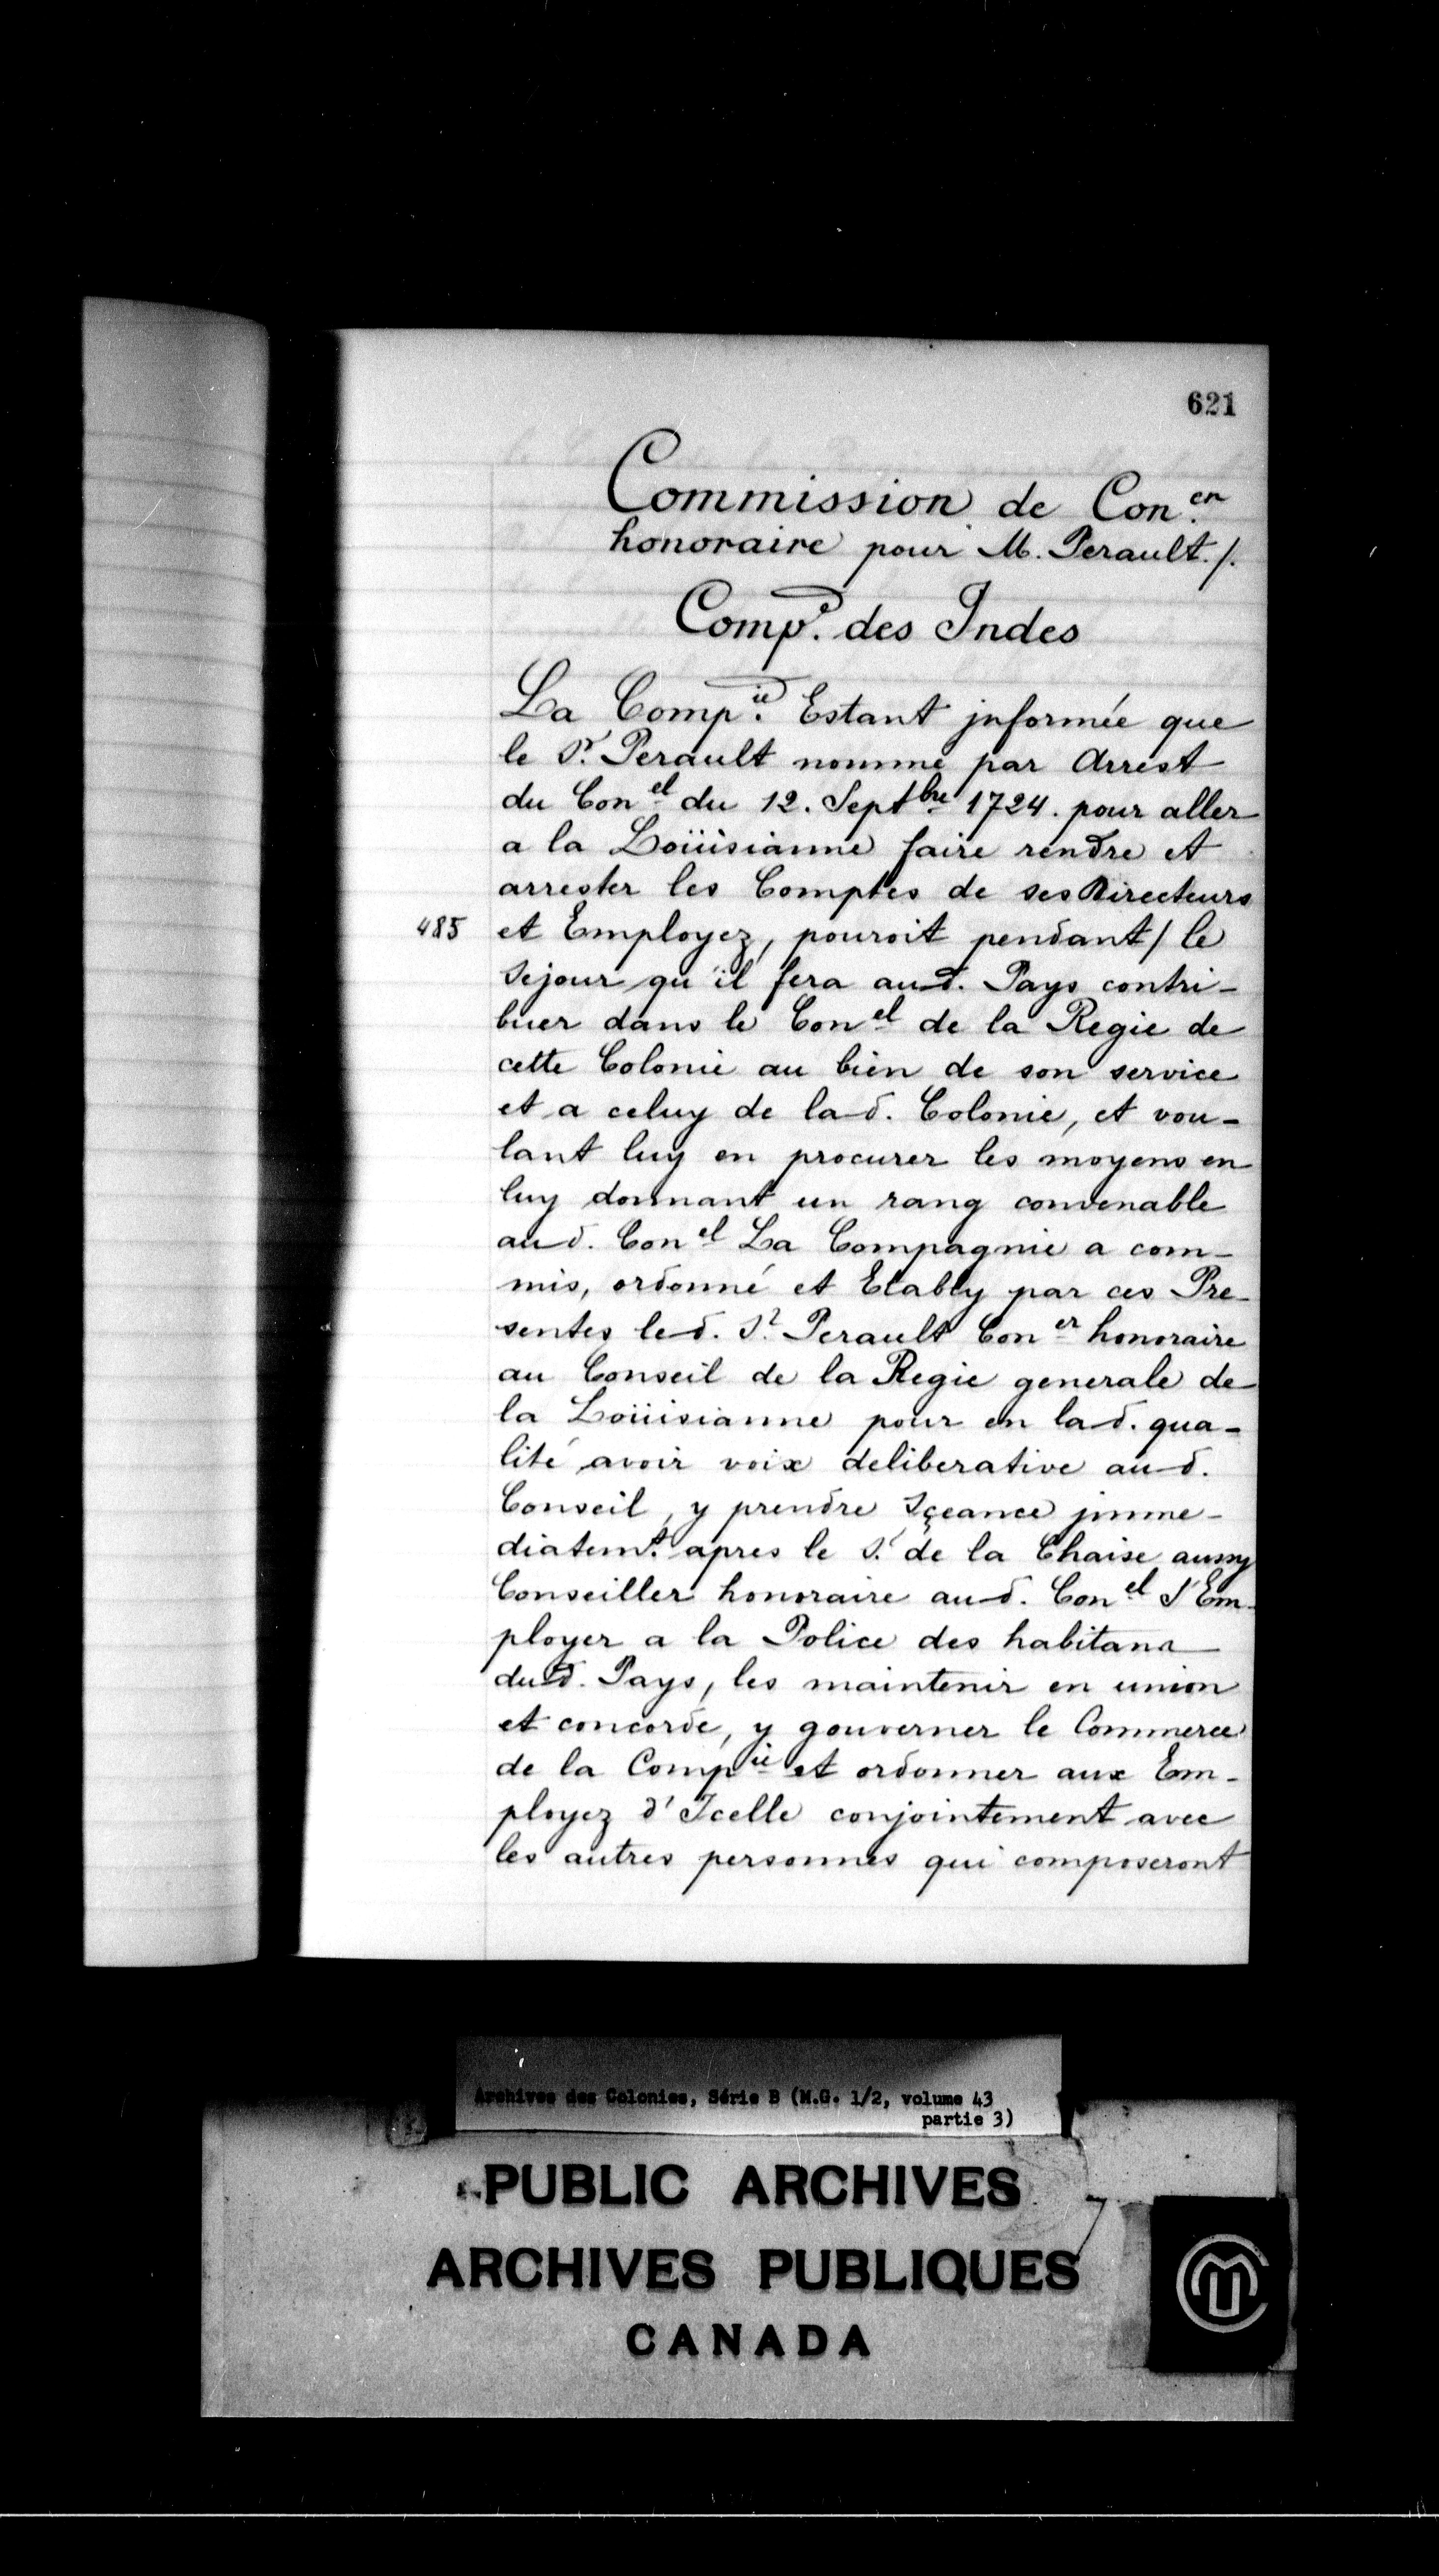 621
Commission de Con.en
honoraire pour M. Perault./.
Comp.e des Indes
La Comp.ie Estant jnformée que
le Sr. Perault nommé par Arrest
du Con.el du 12. Septbre 1724. pour aller
a la Loüisianne faire rendre et
arrester les Comptes de ses Directeurs
485 et Employez, pouroit pendant / le
Sejour qu'il fera aud. Pays contri-
buer dans le Conel de la Regie de
cette Colonie au bien de son service
et a celuy de lad. Colonie, et vou-
lant luy en procurer les moyens en
luy donnant un rang convenable
aud. Conel La Compagnie a com-
mis, ordonné et Etably par ces Pre-
sentes led. Sr. Perault Coner honoraire
au Conseil de la Regie generale de
la Loüisianne pour en lad. qua-
lité avoir voix deliberative aud.
Conseil, y prendre Sçeance jmme-
diatemt. apres le Sr. de la Chaise aussy
Conseiller honoraire aud. Conel S'Em-
ployer a la Police des habitans
dud. Pays, les maintenir en union
et concorde, y gouverner le Commerce
de la Compie et ordonner aux Em-
ployez d'Icelle conjointement avec
les autres personnes qui composeront
Archives des Colonies, Série B (M.G. 1/2, volume 43
partie 3)
PUBLIC ARCHIVES
ARCHIVES PUBLIQUES
CANADA